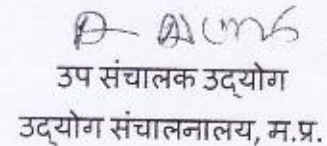 उप संचालक उद्योग
उद्योग संचालनालय, म.प्र.